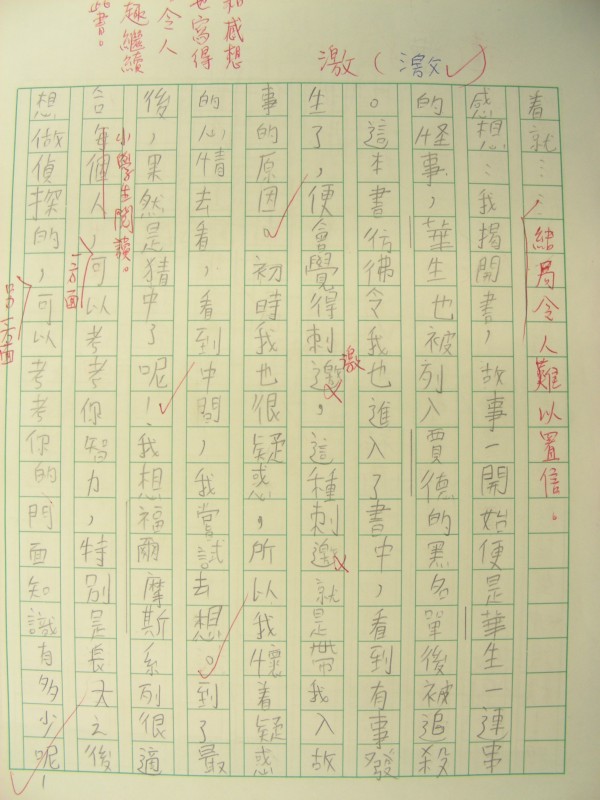 激（激）
看就……
結局令人難以置信。
感想：：我揭開書，故事一開始便是華生一連串
的怪事，華生也被列入賈德的黑名單後被追殺
。這本書彷彿令我也進入了書中，看到有事發
生了，便會覺得刺邀，這種刺邀就是帶我入故
激
事的原因。初時我也很疑惑，所以我懷着疑惑
的心情去看，看到中間，我嘗試去想。到了最
後，果然是猜中了呢！我想福爾摩斯系列很適
小學生閱讀。
合每個人，可以考考你智力，特別是長大之後
一方面
想做偵探的，可以考考你的門面知識有多少呢！
另一方面
感想
也寫得
令人
趣繼續
書。